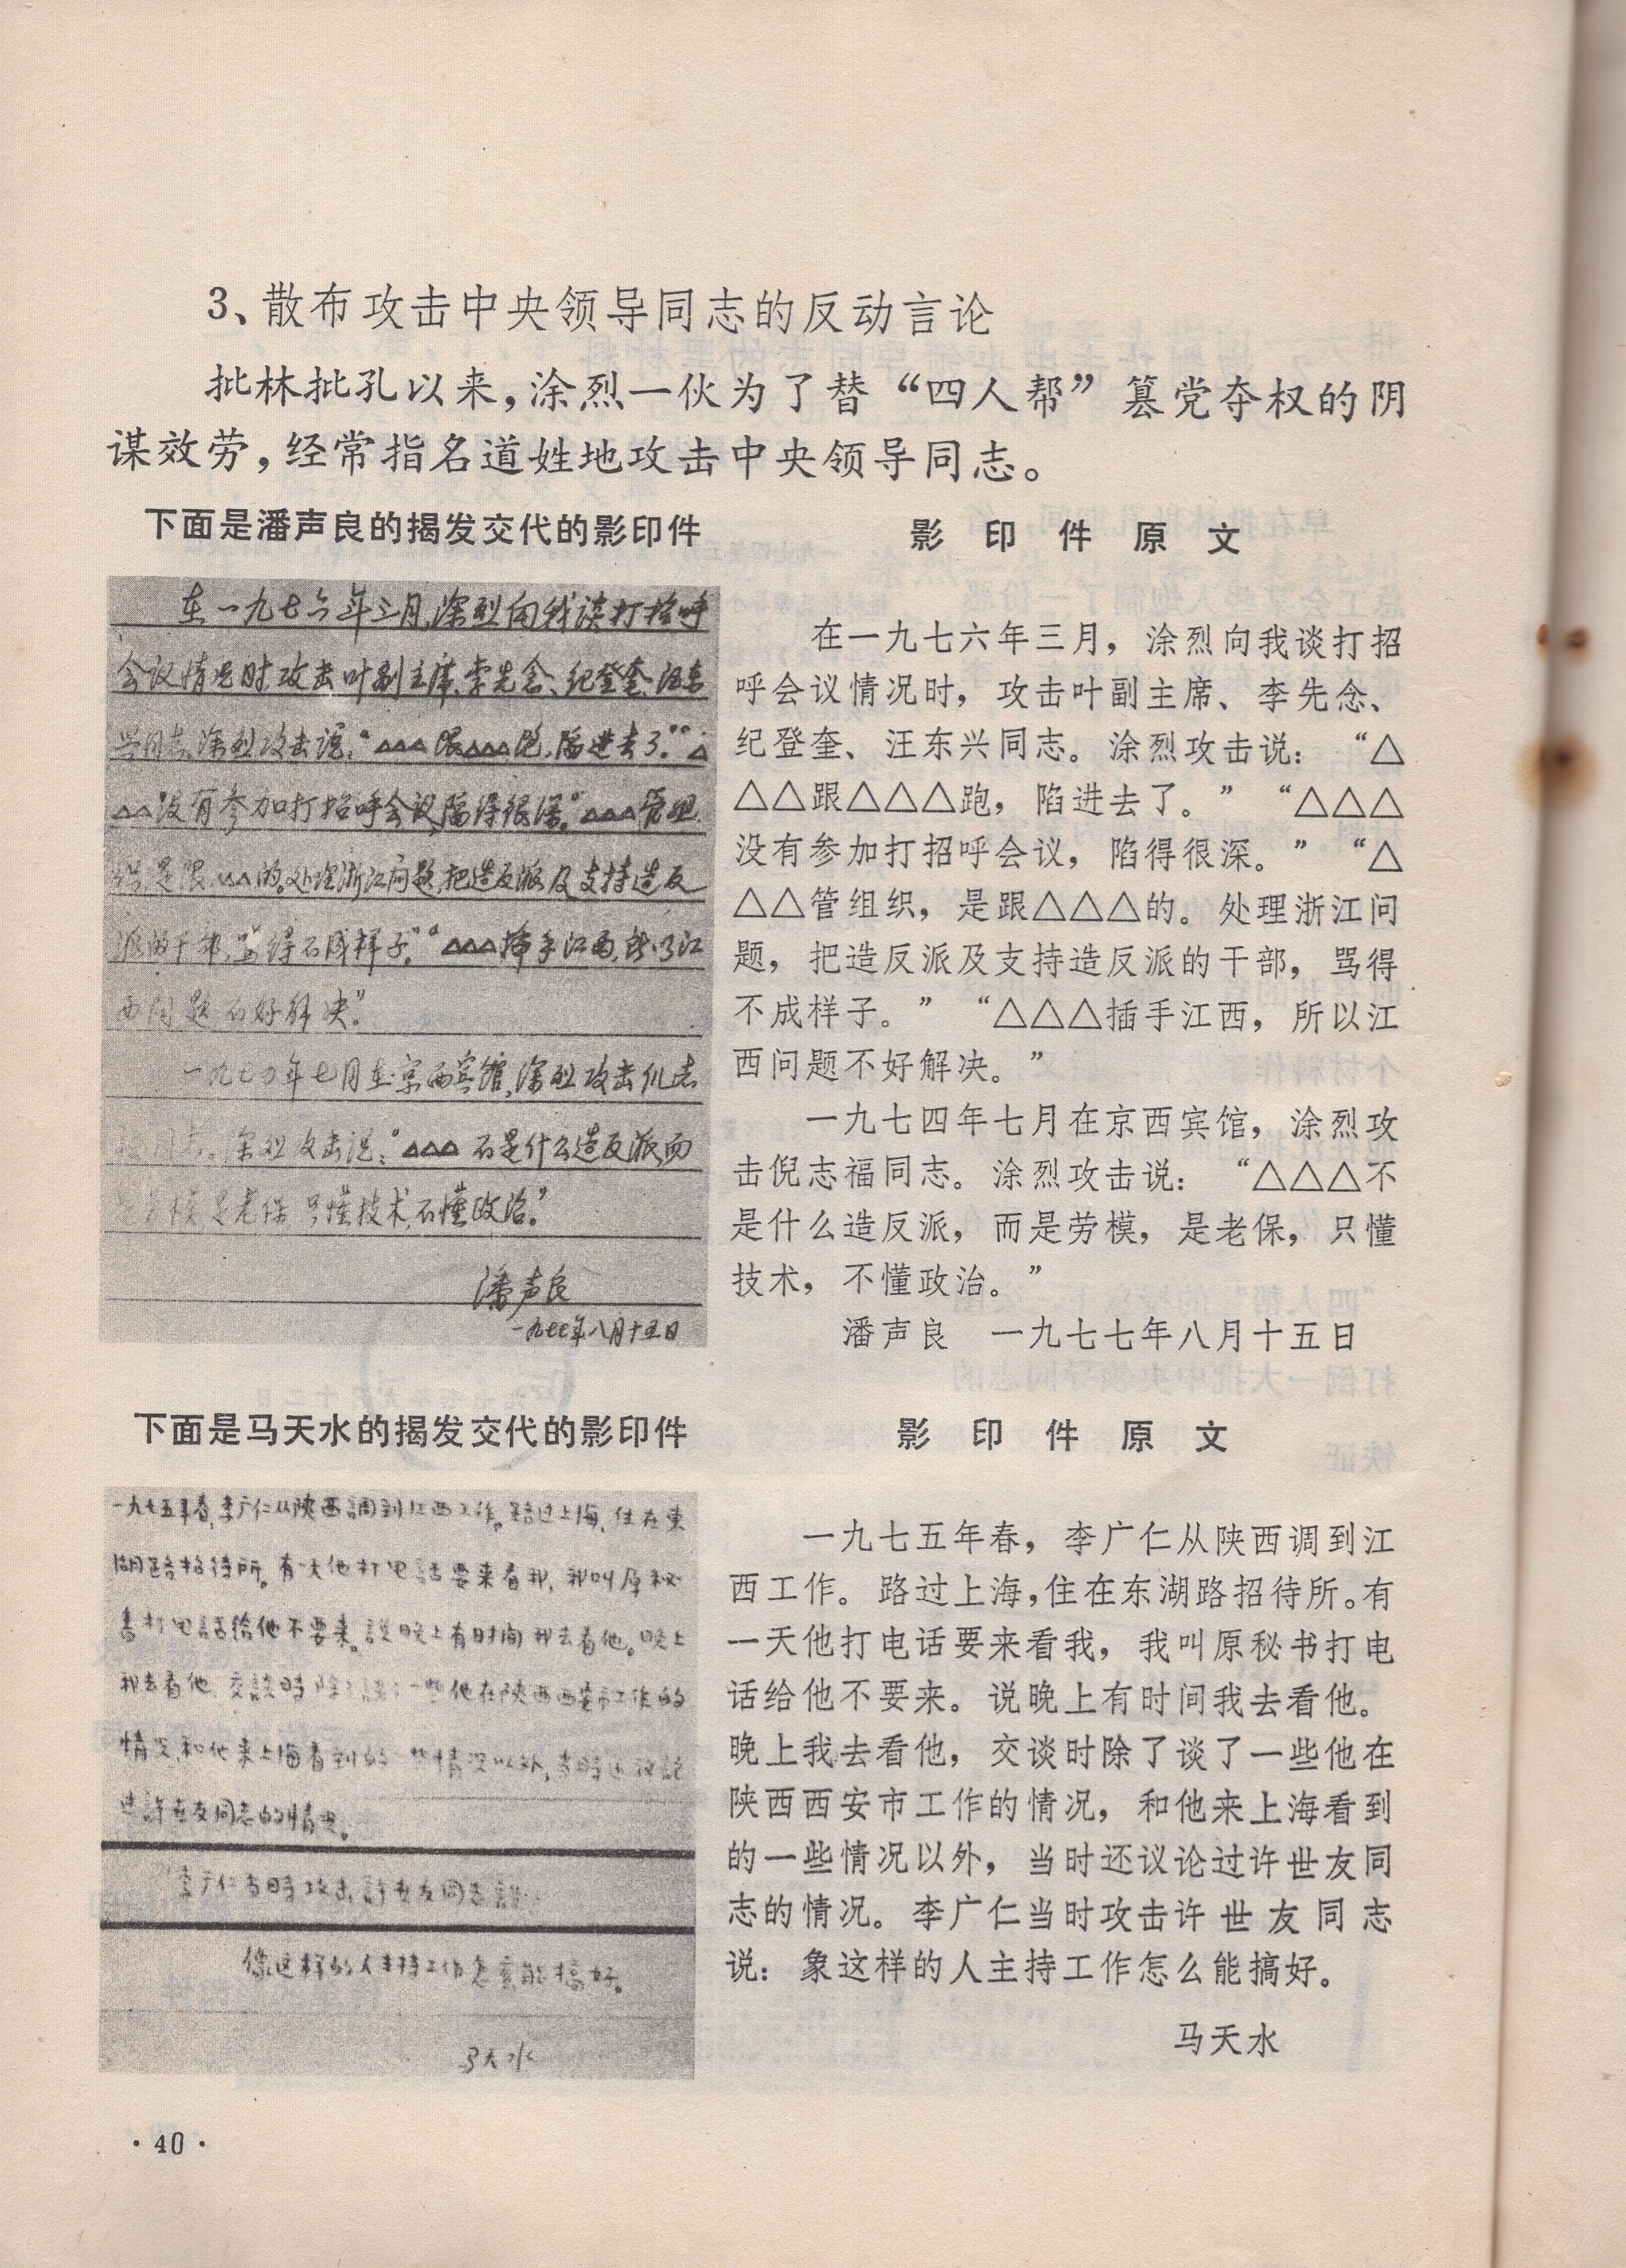 3、散布攻击中央领导同志的反动言论
批林批孔以来，涂烈一伙为了替“四人帮”篡党夺权的阴
谋效劳，经常指名道姓地攻击中央领导同志。
下面是潘声良的揭发交代的影印件
在一九七六年三月，涂烈向我谈打招呼
会议情况时攻击叶副主席、李先念、纪登奎、汪东
兴同志。涂烈攻击说：“△△△跟△△△跑，陷进去了。”“△
△△没有参加打招呼会议，陷得很深。”“△△△管组
织是跟△△△的。处理浙江问题，把造反派及支持造反
派的干部，骂得不成样子。”“△△△插手江西，所以江
西问题不好解决。”
一九七四年七月在京西宾馆，涂烈攻击倪志
福同志。涂烈攻击说：“△△△不是什么造反派而
是劳模是老保只懂技术，不懂政治。”
潘声良
一九七七年八月十五日
影印件原文
在一九七六年三月，涂烈向我谈打招
呼会议情况时，攻击叶副主席、李先念、
纪登奎、汪东兴同志。涂烈攻击说：“△
△△跟△△△跑，陷进去了。”“△△△
没有参加打招呼会议，陷得很深。”“△
△△管组织，是跟△△△的。处理浙江问
题，把造反派及支持造反派的干部，骂得
不成样子。”“△△△插手江西，所以江
西问题不好解决。”
一九七四年七月在京西宾馆，涂烈攻
击倪志福同志。涂烈攻击说：“△△△不
是什么造反派，而是劳模，是老保，只懂
技术，不懂政治。”
潘声良 一九七七年八月十五日
下面是马天水的揭发交代的影印件
一九七五年春，李广仁从陕西調到江西工作。路过上海，住在東
湖路招待所。有一天他打电話要来看我，我叫原秘
書打电話給他不要来。說晚上有时间我去看他。晚上
我去看他，交談時除了談了一些他在陕西西安市工作的
情况，和他来上海看到的一些情况以外，当時还议論
过許世友同志的情况。
李广仁当時攻击許世友同志說：
像这样的人主持工作怎么能搞好。
马天水
影印件原文
一九七五年春，李广仁从陕西调到江
西工作。路过上海，住在东湖路招待所。有
一天他打电话要来看我，我叫原秘书打电
话给他不要来。说晚上有时间我去看他。
晚上我去看他，交谈时除了谈了一些他在
陕西西安市工作的情况，和他来上海看到
的一些情况以外，当时还议论过许世友同
志的情况。李广仁当时攻击许世友同志
说：象这样的人主持工作怎么能搞好。
马天水
·40·